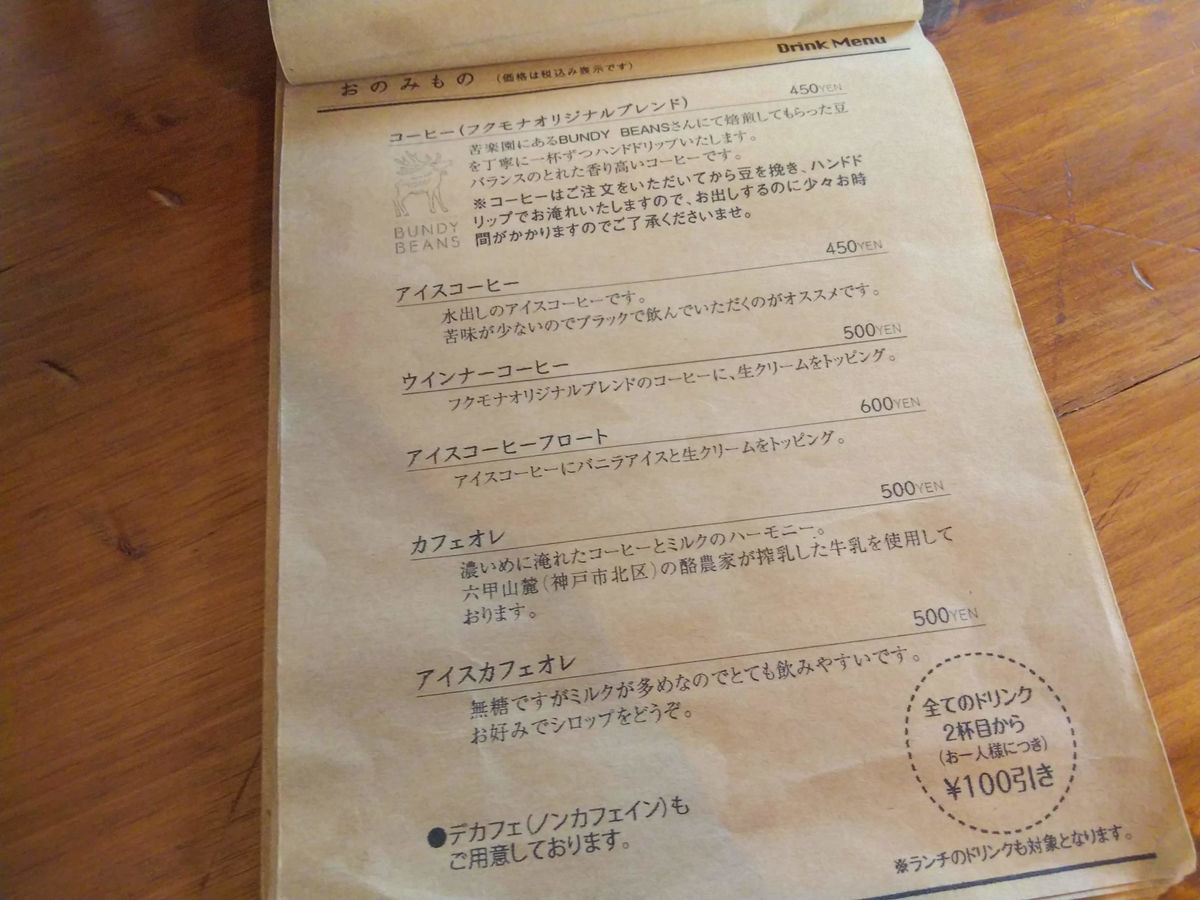 おのみもの (価格は税込み表示です) Drink Menu
コーヒー(フクモナオリジナルブレンド) 450YEN
苦楽園にあるBUNDY BEANSさんにて焙煎してもらった豆
を丁寧に一杯ずつハンドドリップいたします。
バランスのとれた香り高いコーヒーです。
※コーヒーはご注文をいただいてから豆を挽き、ハンドド
リップでお淹れいたしますので、お出しするのに少々お時
間がかかりますのでご了承くださいませ。
BUNDY
BEANS
アイスコーヒー 450YEN
水出しのアイスコーヒーです。
苦味が少ないのでブラックで飲んでいただくのがオススメです。
ウインナーコーヒー 500YEN
フクモナオリジナルブレンドのコーヒーに、生クリームをトッピング。
アイスコーヒーフロート 600YEN
アイスコーヒーにバニラアイスと生クリームをトッピング。
カフェオレ 500YEN
濃いめに淹れたコーヒーとミルクのハーモニー。
六甲山麓(神戸市北区)の酪農家が搾乳した牛乳を使用して
おります。
アイスカフェオレ 500YEN
無糖ですがミルクが多めなのでとても飲みやすいです。
お好みでシロップをどうぞ。
全てのドリンク
2杯目から
(お一人様につき)
¥100引き
●デカフェ(ノンカフェイン)も
ご用意しております。
※ランチのドリンクも対象となります。